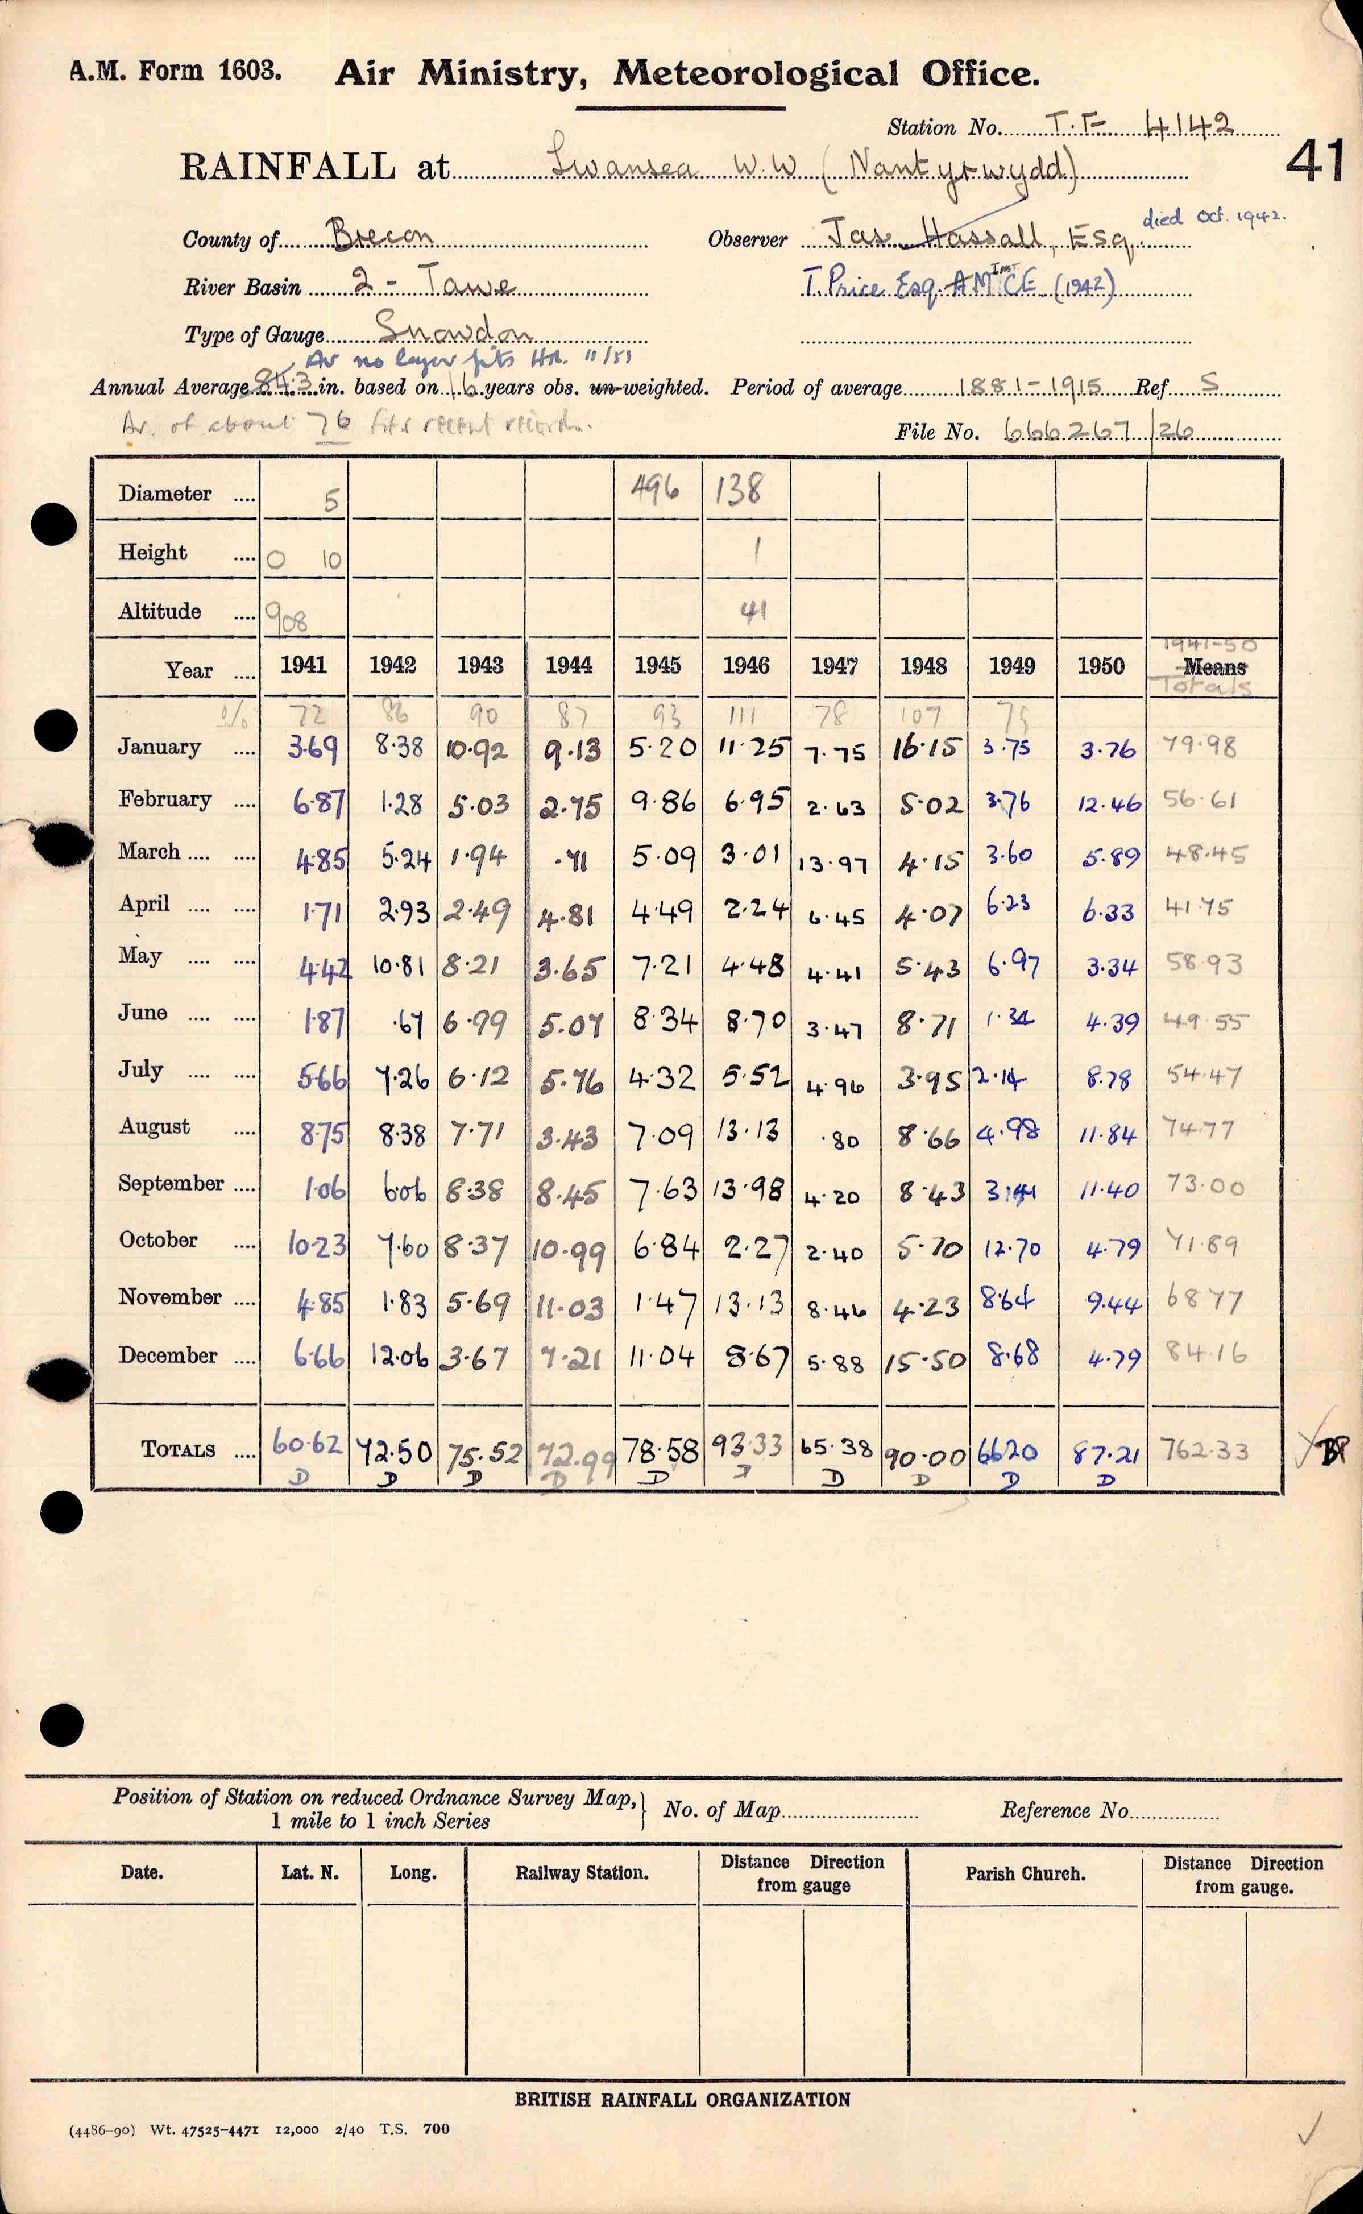 A.M. Form 1603. Air Ministry, Meteorological Office.
Station No. T.F 4142
RAINFALL at Swansea W.W (Nantyrwydd) 41
County of Brecon Observer Jas. Hassall, Esq. died Oct. 1942.
River Basin 2 - Tawe T. Price Esq. A.M.Inst.C.E. (1942)
Type of Gauge Snowdon
Av no longer fits HR. 11/51
Annual Average 84.3 in. based on 16 years obs. un-weighted. Period of average 1881-1915 Ref. S
Av. of about 76 fits recent records.
File No. 666267/26
Diameter .... 5 496 138
Height .... 0 10 1
Altitude .... 908 41
1941-50
Year .... 1941 1942 1943 1944 1945 1946 1947 1948 1949 1950 Means
Totals
% 72 86 90 87 93 111 78 107 79
January .... 3.69 8.38 10.92 9.13 5.20 11.25 7.75 16.15 3.75 3.76 79.98
February .... 6.87 1.28 5.03 2.75 9.86 6.95 2.63 5.02 3.76 12.46 56.61
March .... .... 4.85 5.24 1.94 .71 5.09 3.01 13.97 4.15 3.60 5.89 48.45
April .... .... 1.71 2.93 2.49 4.81 4.49 2.24 6.45 4.07 6.23 6.33 41.75
May .... .... 4.42 10.81 8.21 3.65 7.21 4.48 4.41 5.43 6.97 3.34 58.93
June .... .... 1.87 .67 6.99 5.07 8.34 8.70 3.47 8.71 1.34 4.39 49.55
July .... .... 5.66 7.26 6.12 5.76 4.32 5.52 4.96 3.95 2.14 8.78 54.47
August .... 8.75 8.38 7.71 3.43 7.09 13.13 .80 8.66 4.98 11.84 74.77
September .... 1.06 6.06 8.38 8.45 7.63 13.98 4.20 8.43 3.41 11.40 73.00
October .... 10.23 7.60 8.37 10.99 6.84 2.27 2.40 5.70 12.70 4.79 71.89
November .... 4.85 1.83 5.69 11.03 1.47 13.13 8.46 4.23 8.64 9.44 68.77
December .... 6.66 12.06 3.67 7.21 11.04 8.67 5.88 15.50 8.68 4.79 84.16
TOTALS .... 60.62 72.50 75.52 72.99 78.58 93.33 65.38 90.00 66.20 87.21 762.33
D D D D D D D D D
Position of Station on reduced Ordnance Survey Map, 1 mile to 1 inch Series } No. of Map Reference No.
Date. Lat. N. Long. Railway Station. Distance Direction from gauge Parish Church. Distance Direction from gauge.
BRITISH RAINFALL ORGANIZATION
(4486-90) Wt. 47525-4471 12,000 2/40 T.S. 700